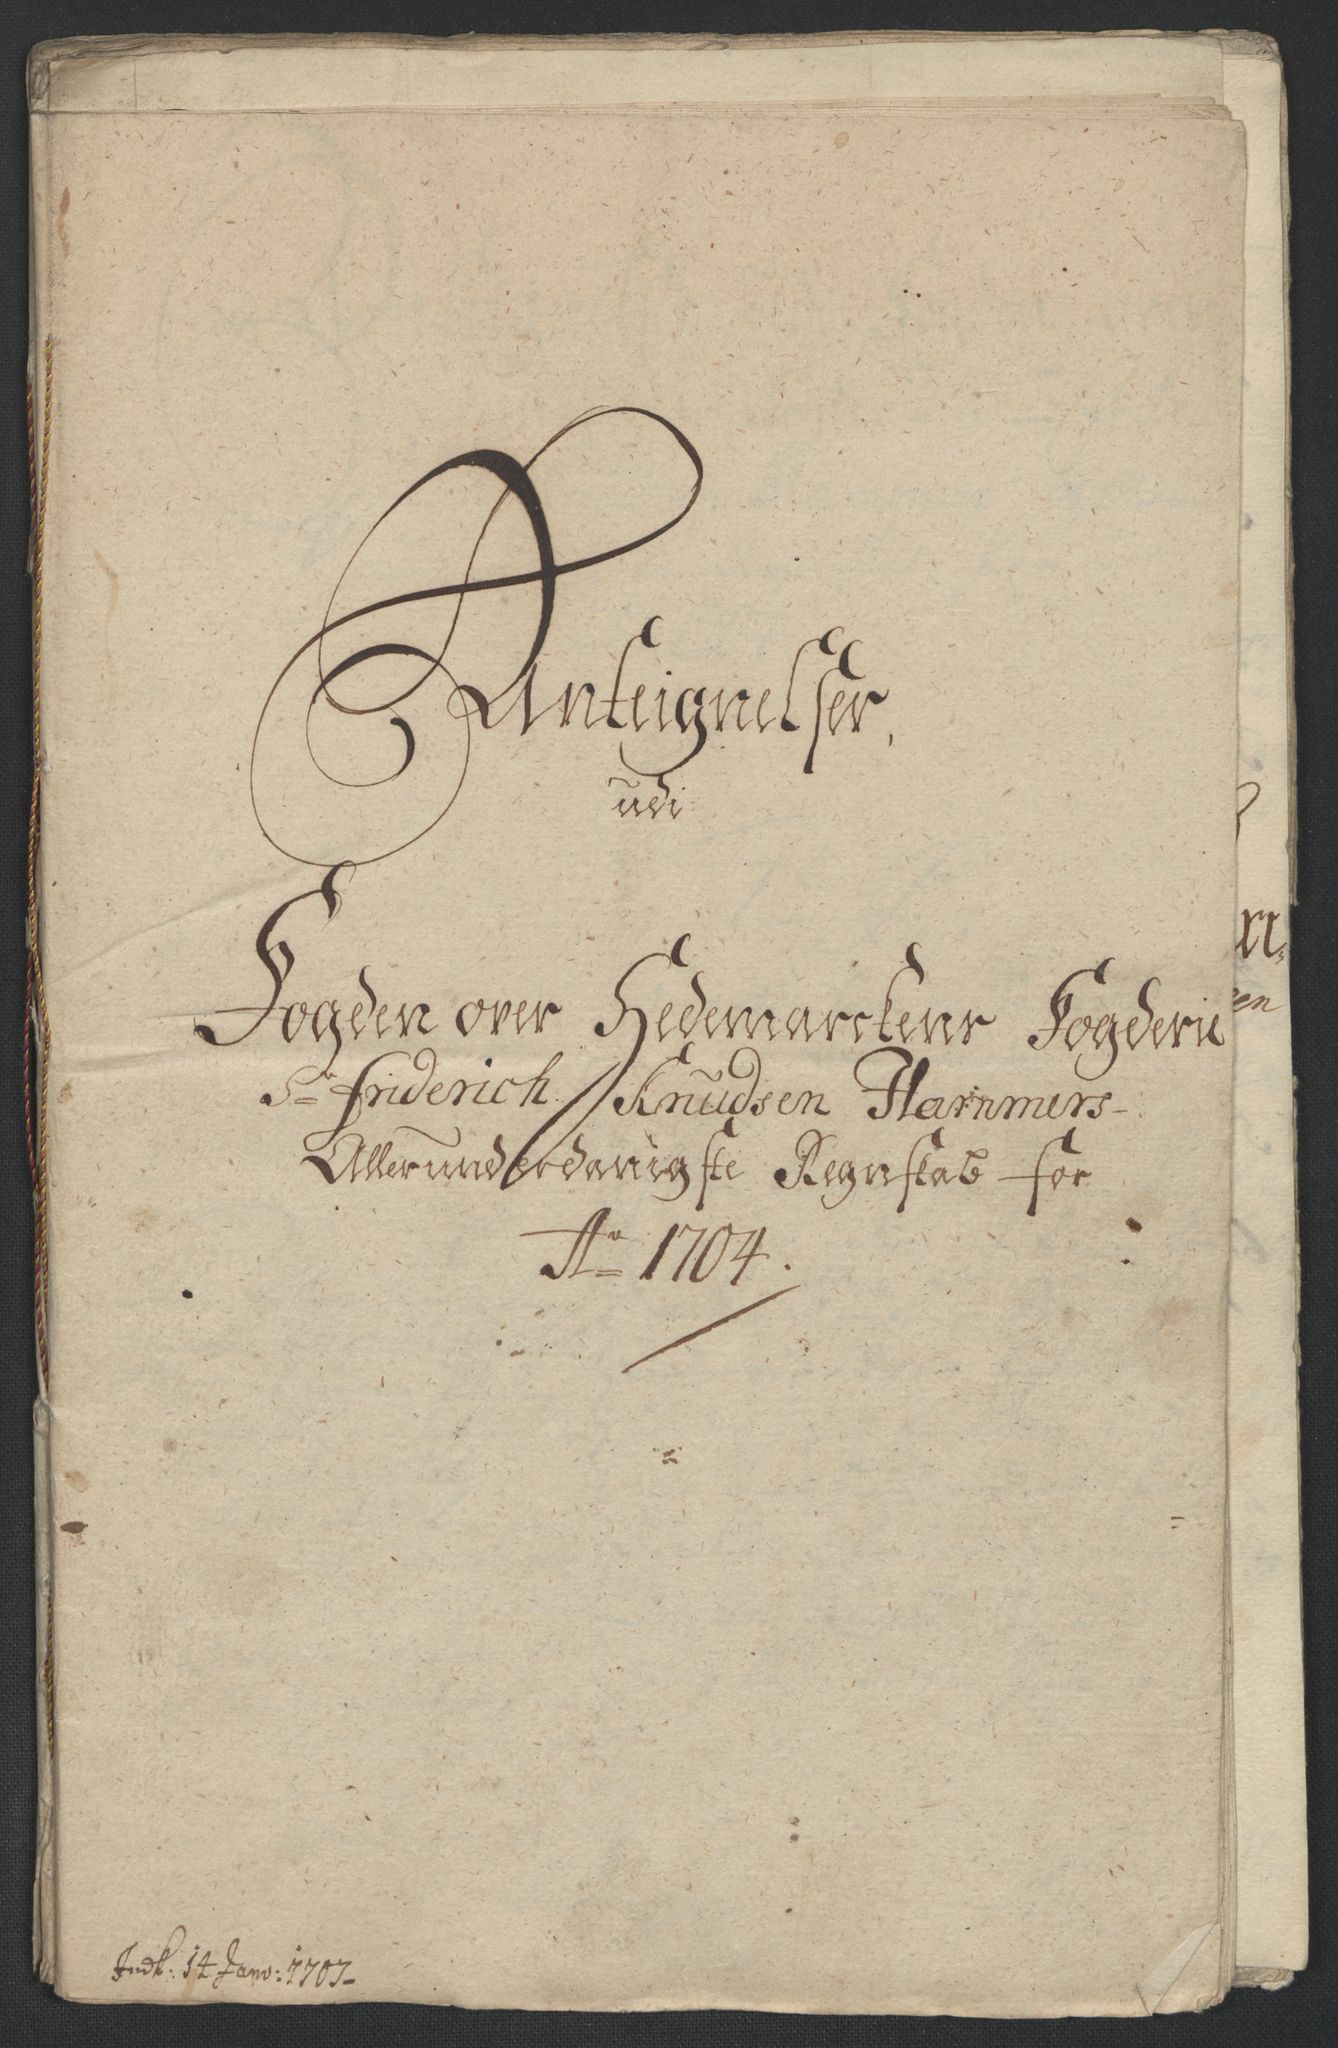 Anteignelser,
udi
Fogden over Hedemarckens Fogderie
Sr. Friderich Knudsen Hammers
Allerunderdanigste Regnskab for
Ao 1704.
Indk: 14 Janv: 1707